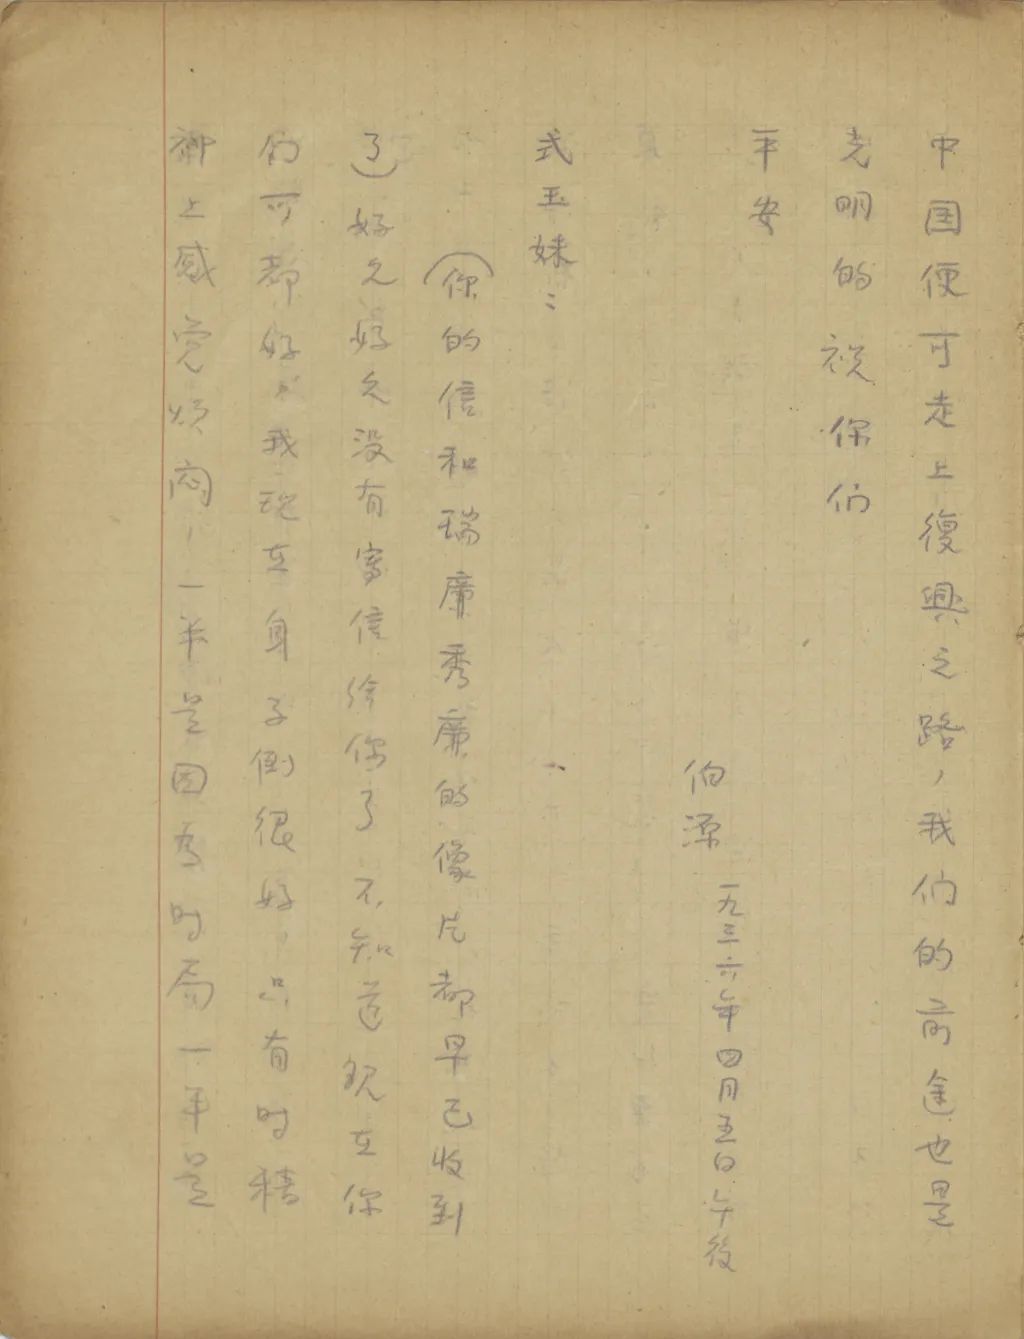 中国便可走上復興之路，我们的前途也是
光明的祝你们
平安
伯源
一九三六年四月五日午後
式玉妹：
（你的信和瑞廉秀廉的像片都早已收到
了）好久好久没有寄信给你了不知道现在你
们可都好？我现在身子倒很好，只有时精
神上感觉烦闷，一半是因为时局一半是